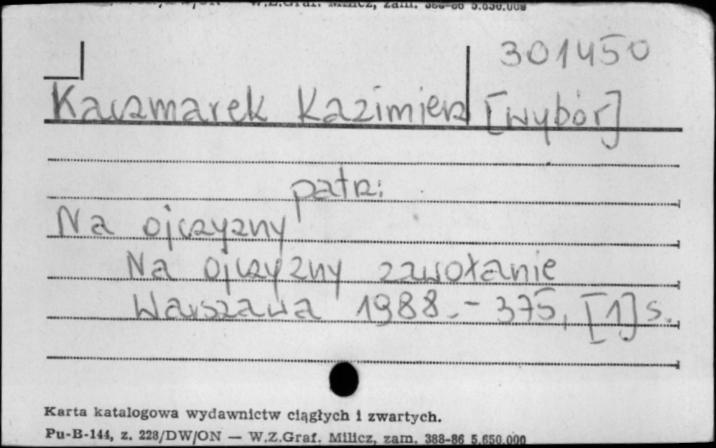 W.Z.Graf. Milicz, zam. 388-86 5.650.000
301450
Kaczmarek Kazimierz [wybór]
patrz:
Na ojczyzny
Na ojczyzny zawołanie
Warszawa 1988.- 375, [1] s.
Karta katalogowa wydawnictw ciągłych i zwartych.
Pu-B-144, z. 228/DW/ON — W.Z.Graf. Milicz, zam. 388-86 5.650.000